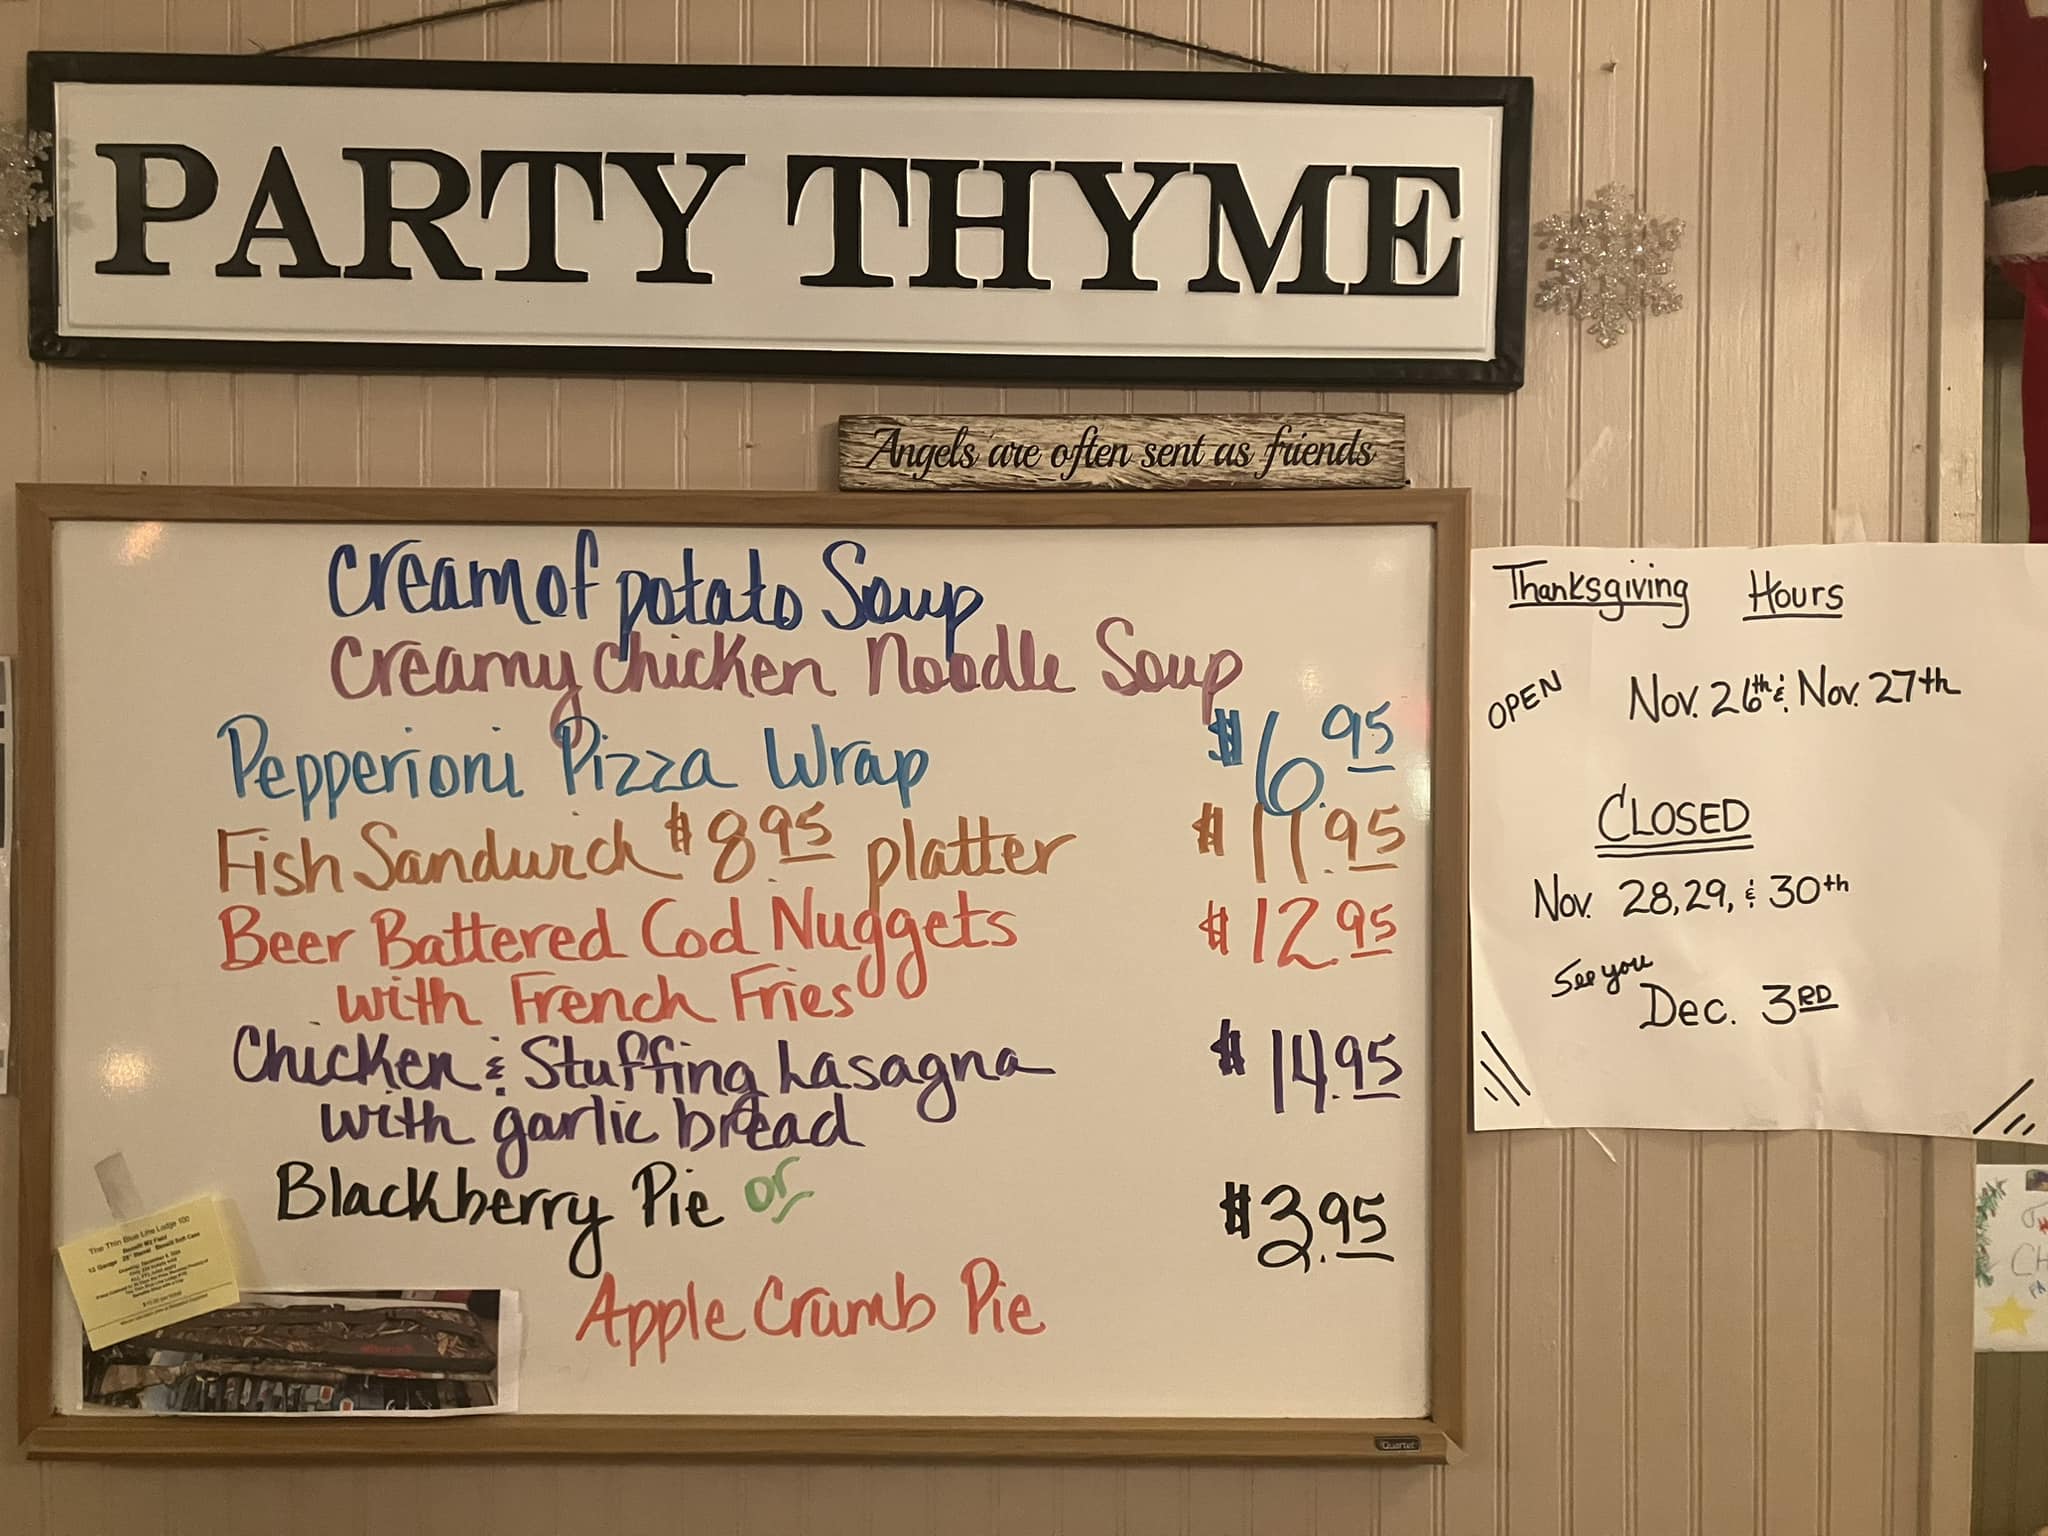 PARTY THYME
Angels are often sent as friends
Cream of potato Soup
Creamy Chicken Noodle Soup
Pepperioni Pizza Wrap $6.95
Fish Sandwich $8.95 platter $11.95
Beer Battered Cod Nuggets $12.95
with French Fries
Chicken & Stuffing Lasagna $14.95
with garlic bread
Blackberry Pie or $3.95
Apple Crumb Pie
Quartet
Thanksgiving Hours
OPEN Nov. 26th & Nov. 27th
CLOSED
Nov. 28, 29, & 30th
See you
Dec. 3RD
The Thin Blue Line Lodge 100